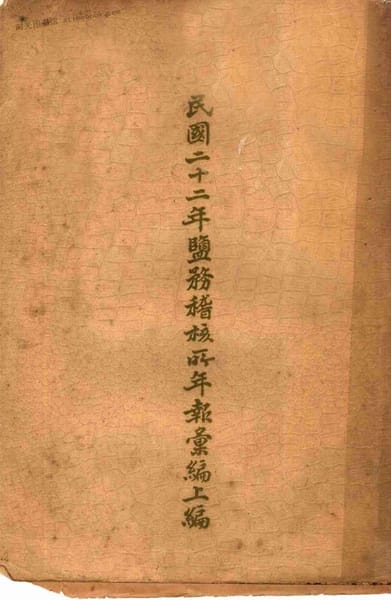 民國二十二年鹽務稽核所年報彙編上編